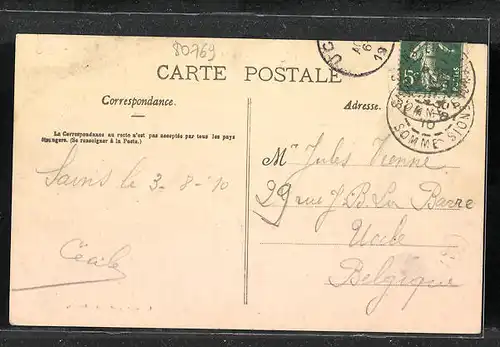 80769
CARTE POSTALE
Correspondance.
Adresse.
La Correspondance au recto n'est pas acceptée par tous les pays
étrangers. (Se renseigner à la Poste.)
Sains le 3-8-10
Cécile
Mr Jules Vienne
29 rue J. B. La Barre
Uccle
Belgique
5c
SOMME
10
UCC